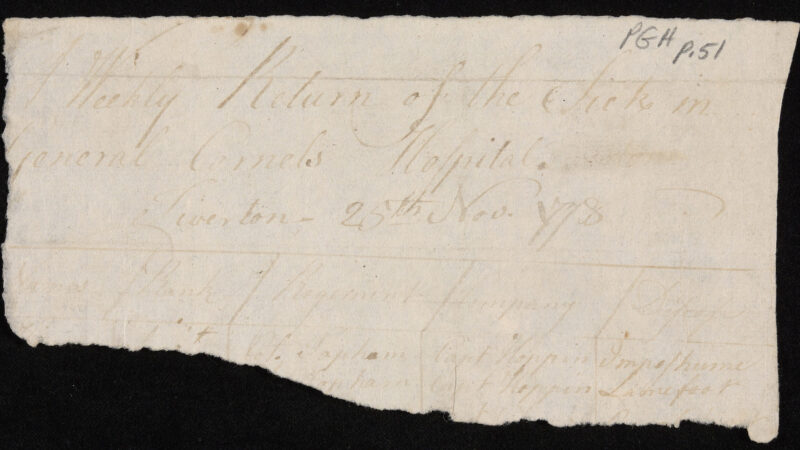 PGH
P.51
A Weekly Return of the Sick in
General Cornels Hospital.
Tiverton - 25th Nov. 1778
Names Rank Regiment Company Disease
Col. Tapham Capt Hoppin Imposthume
Capt Hoppin Lamefoot